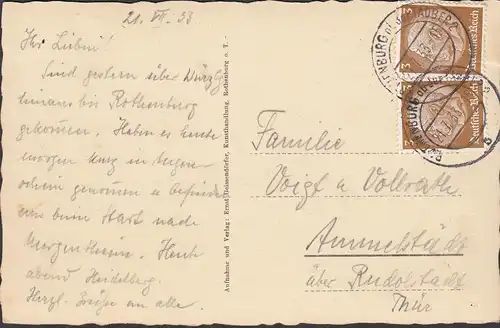 21. VII. 33
Ihr Lieben!
Sind gestern über Würzbg
hinaus bis Rothenburg
gekommen. Haben es heute
morgen kurz in Augen-
schein genommen u. befinden
uns beim Start nach
Mergentheim. Heute
abend Heidelberg.
Herzl. Grüße an alle.
Aufnahme und Verlag: Ernst Geissendörfer, Kunsthandlung, Rothenburg o. T.
Familie
Voigt u Vollrath
Ammelstädt
über Rudolstadt
Thür
3
Deutsches Reich
3
Deutsches Reich